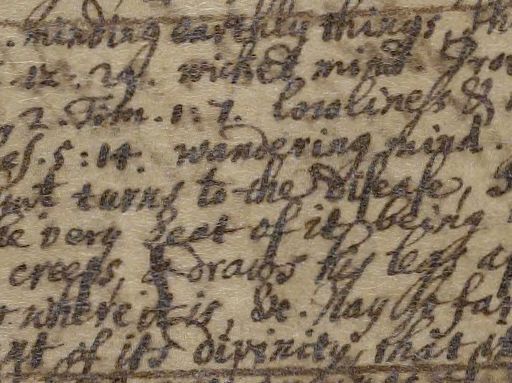 . minding earthly things, th
. 12 : 29. wicked mind. Prov
2. Tim. 1 : 7. lowliness of
es. 5 : 14. wandering mind.
turns to the Disease,
be very seat of its being
creeps, & draws his leg a
where it is, &c. Nay
of its divinity, that